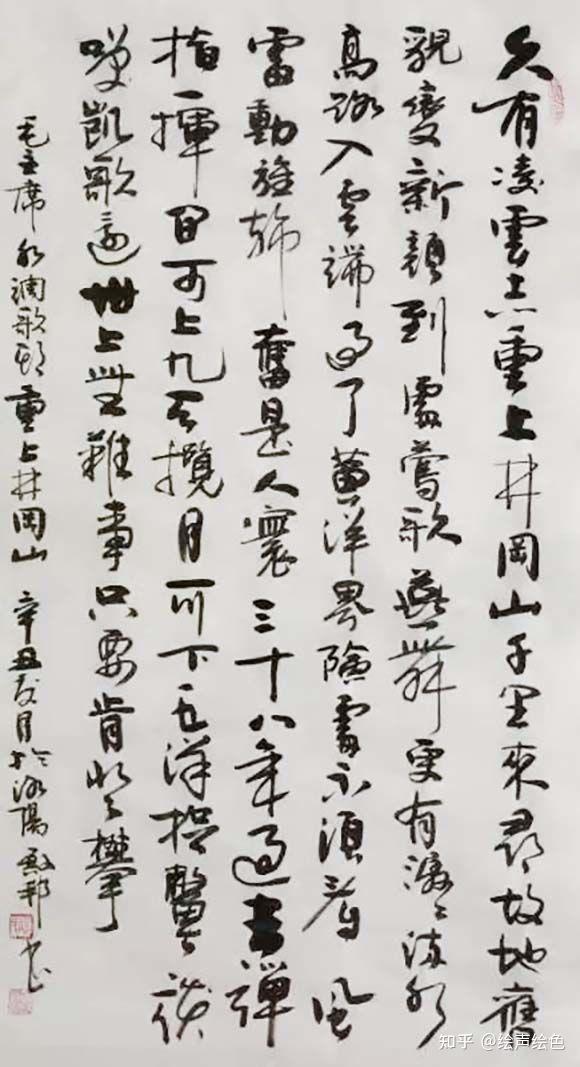 久有凌雲志重上井岡山千里來尋故地舊
貌變新顏到處鶯歌燕舞更有潺〻流水
高路入云端過了黄洋界險處不須看風
雷動旌旆奮是人寰三十八年過去彈
指一揮間可上九天攬月可下五洋捉鱉談
嘆凱歌還世上無難事只要肯登攀
毛主席水調歌頭重上井岡山 辛丑月於陽書
知乎 @绘声绘色